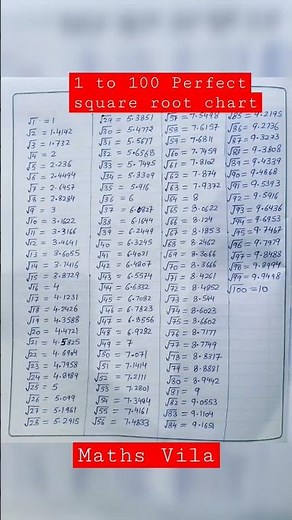 1 to 100 Perfect
square root chart
√1 = 1
√2 = 1.4142
√3 = 1.732
√4 = 2
√5 = 2.236
√6 = 2.4494
√7 = 2.6457
√8 = 2.8284
√9 = 3
√10 = 3.1622
√11 = 3.3166
√12 = 3.4641
√13 = 3.6055
√14 = 3.7416
√15 = 3.8729
√16 = 4
√17 = 4.1231
√18 = 4.2426
√19 = 4.3588
√20 = 4.4721
√21 = 4.5825
√22 = 4.6904
√23 = 4.7958
√24 = 4.8989
√25 = 5
√26 = 5.099
√27 = 5.1961
√28 = 5.2915
√29 = 5.3851
√30 = 5.4772
√31 = 5.5677
√32 = 5.6568
√33 = 5.7445
√34 = 5.8309
√35 = 5.916
√36 = 6
√37 = 6.0827
√38 = 6.1644
√39 = 6.2449
√40 = 6.3245
√41 = 6.4031
√42 = 6.4807
√43 = 6.5574
√44 = 6.6332
√45 = 6.7082
√46 = 6.7823
√47 = 6.8556
√48 = 6.9282
√49 = 7
√50 = 7.071
√51 = 7.1414
√52 = 7.2111
√53 = 7.2801
√54 = 7.3484
√55 = 7.4161
√56 = 7.4833
√57 = 7.5498
√58 = 7.6157
√59 = 7.6811
√60 = 7.7459
√61 = 7.8102
√62 = 7.874
√63 = 7.9372
√64 = 8
√65 = 8.0622
√66 = 8.124
√67 = 8.1853
√68 = 8.2462
√69 = 8.3066
√70 = 8.3666
√71 = 8.4261
√72 = 8.4852
√73 = 8.544
√74 = 8.6023
√75 = 8.6602
√76 = 8.7177
√77 = 8.7749
√78 = 8.8317
√79 = 8.8881
√80 = 8.9442
√81 = 9
√82 = 9.0553
√83 = 9.1104
√84 = 9.1651
√85 = 9.2195
√86 = 9.2736
√87 = 9.3273
√88 = 9.3808
√89 = 9.4339
√90 = 9.4868
√91 = 9.5393
√92 = 9.5916
√93 = 9.6436
√94 = 9.6953
√95 = 9.7467
√96 = 9.7979
√97 = 9.8488
√98 = 9.8994
√99 = 9.9498
√100 = 10
Maths Vila